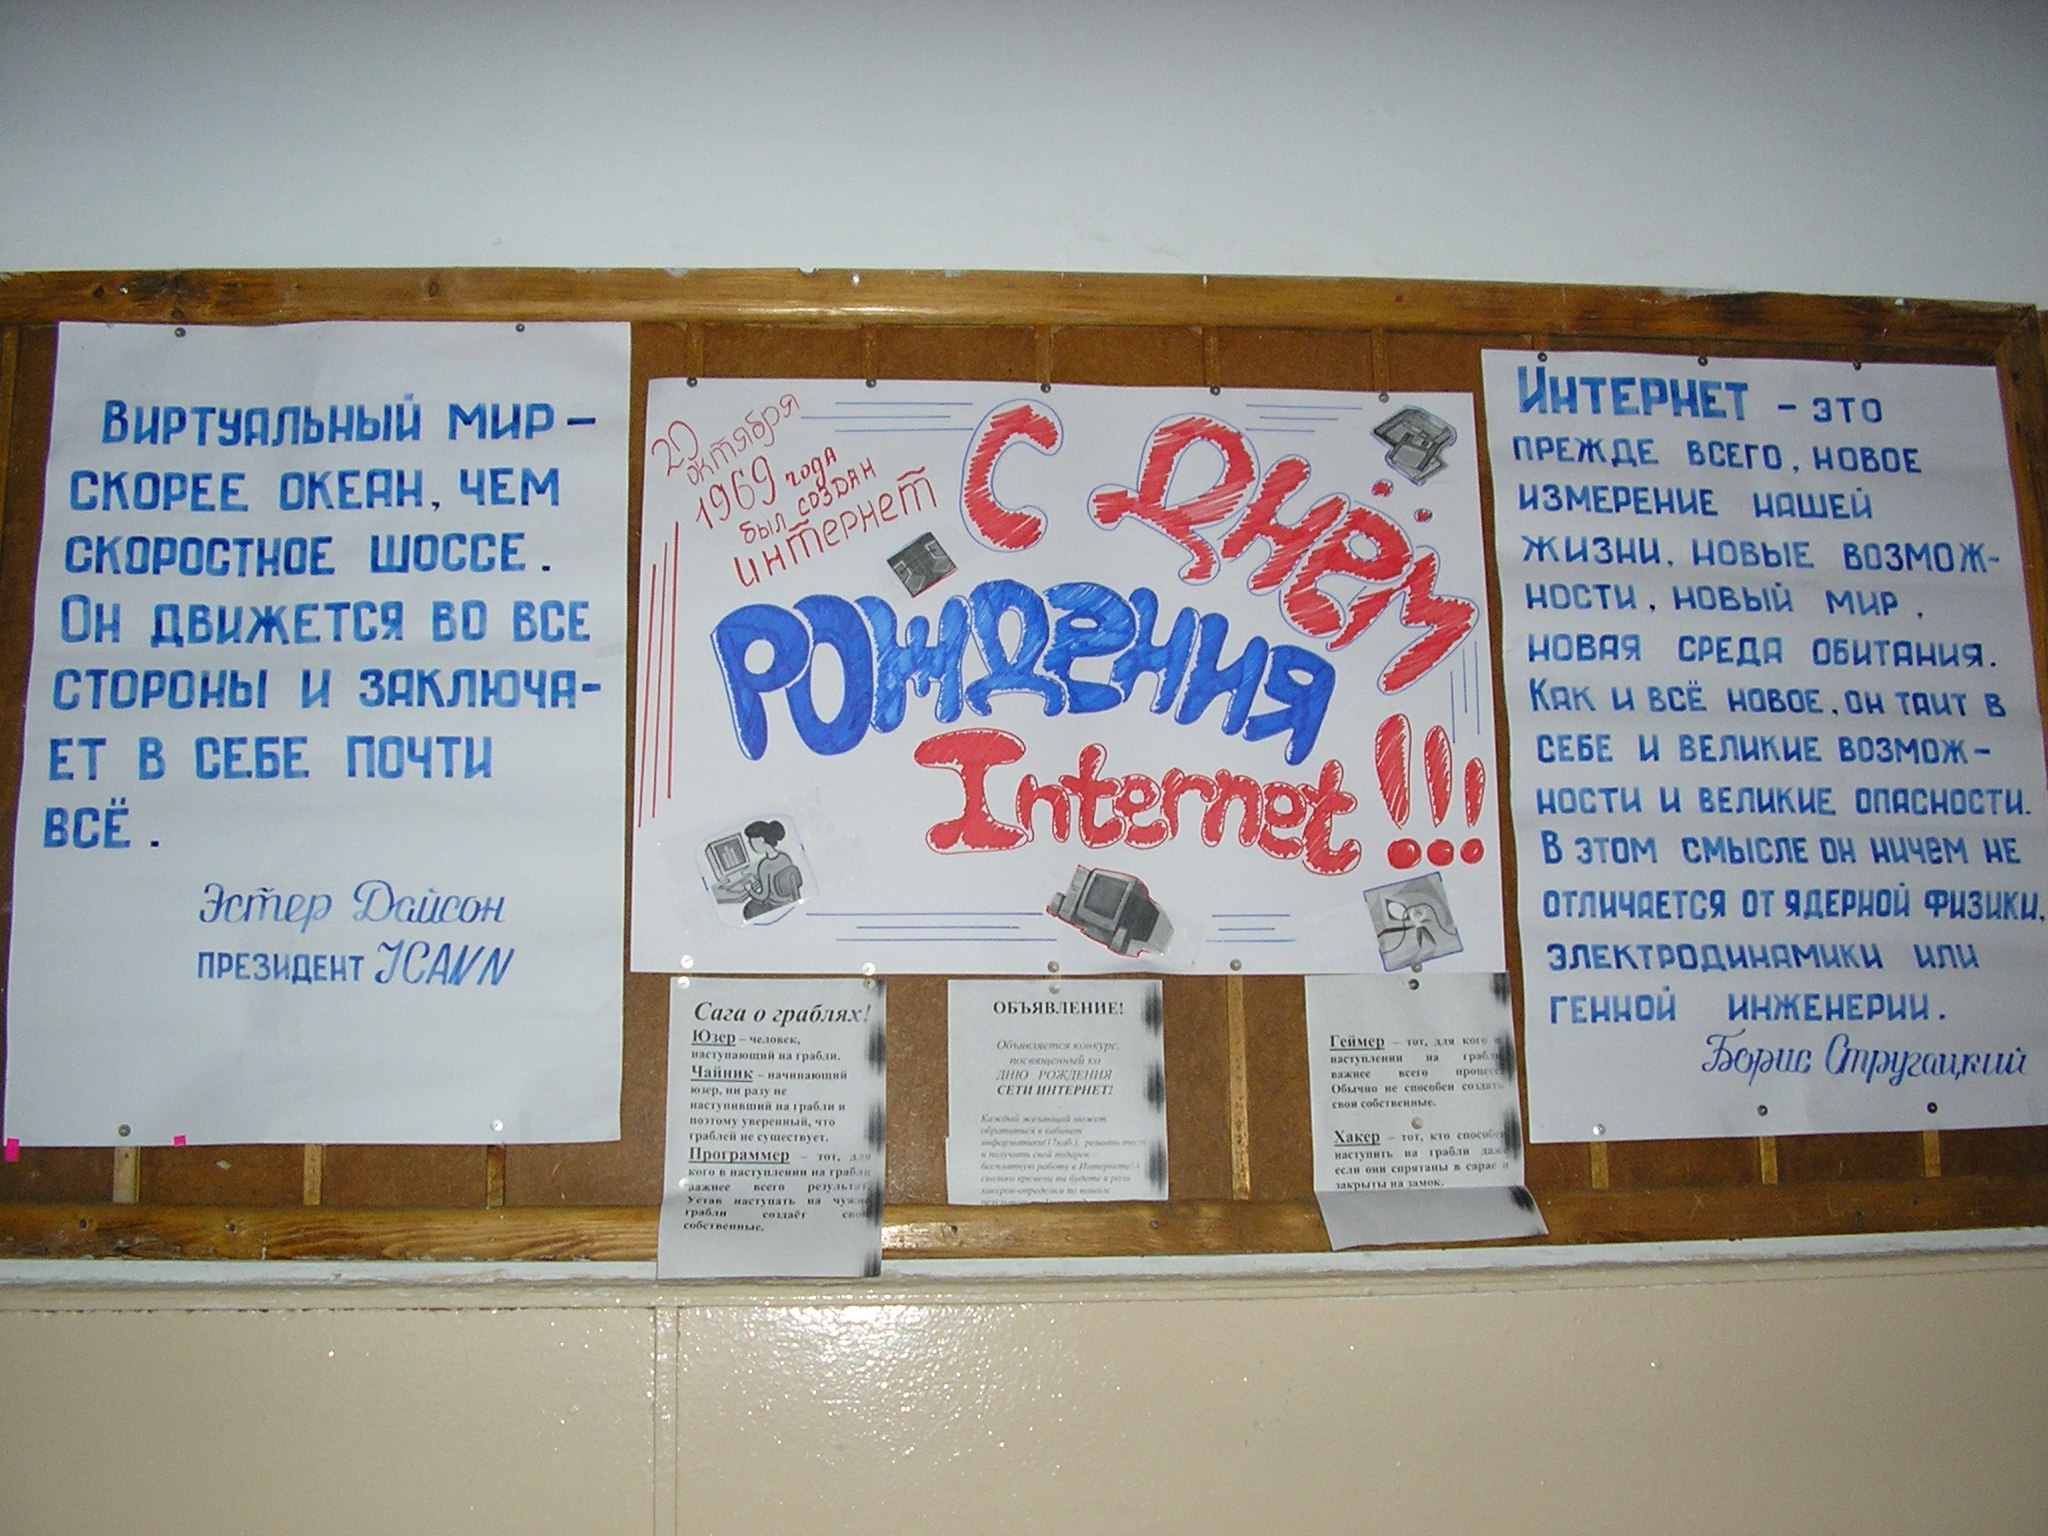 Виртуальный мир –
скорее океан, чем
скоростное шоссе.
Он движется во все
стороны и заключа-
ет в себе почти
всё.
Эстер Дайсон
президент ICANN
20
октября
1969 года
был создан
интернет
С Днём
Рождения
Internet!!!
Интернет – это
прежде всего, новое
измерение нашей
жизни, новые возмож-
ности, новый мир,
новая среда обитания.
Как и всё новое, он таит в
себе и великие возмож-
ности и великие опасности.
В этом смысле он ничем не
отличается от ядерной физики,
электродинамики или
генной инженерии.
Борис Стругацкий
Сага о граблях!
Юзер – человек,
наступающий на грабли.
Чайник – начинающий
юзер, ни разу не
наступивший на грабли и
поэтому уверенный, что
граблей не существует.
Программер – тот, для
кого в наступлении на грабли
важнее всего результат.
Устав наступать на чужие
грабли создаёт свои
собственные.
ОБЪЯВЛЕНИЕ!
Объявляется конкурс,
посвященный ко
ДНЮ РОЖДЕНИЯ
СЕТИ ИНТЕРНЕТ!
Каждый желающий может
обратиться в кабинет
информатики(17каб.), решить тест
и получить свой подарок –
бесплатную работу в Интернете!А
сколько времени вы будете в роли
Геймер – тот, для кого в
наступлении на грабли
важнее всего процесс.
Обычно не способен создать
свои собственные.
Хакер – тот, кто способен
наступить на грабли даже
если они спрятаны в сарае и
закрыты на замок.